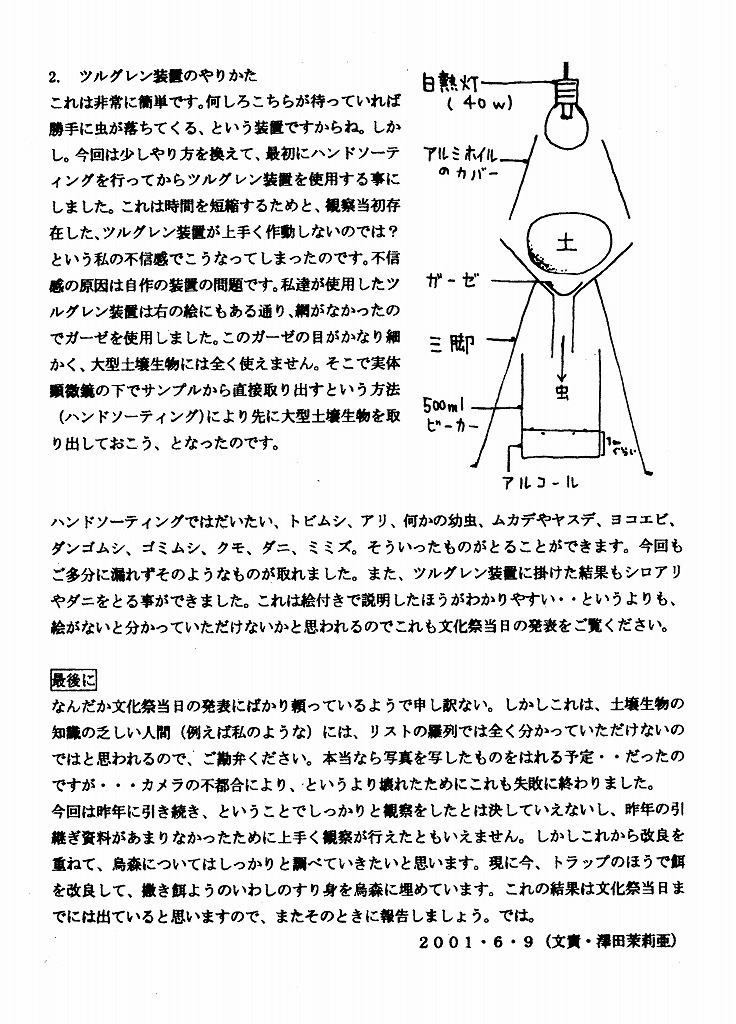 2. ツルグレン装置のやりかた
これは非常に簡単です。何しろこちらが待っていれば
勝手に虫が落ちてくる、という装置ですからね。しか
し。今回は少しやり方を換えて、最初にハンドソーテ
ィングを行ってからツルグレン装置を使用する事に
しました。これは時間を短縮するためと、観察当初存
在した、ツルグレン装置が上手く作動しないのでは？
という私の不信感でこうなってしまったのです。不信
感の原因は自作の装置の問題です。私達が使用したツ
ルグレン装置は右の絵にもある通り、網がなかったの
でガーゼを使用しました。このガーゼの目がかなり細
かく、大型土壌生物には全く使えません。そこで実体
顕微鏡の下でサンプルから直接取り出すという方法
（ハンドソーティング）により先に大型土壌生物を取
り出しておこう、となったのです。
白熱灯
(40w)
アルミホイル
のカバー
土
ガーゼ
三脚
虫
500ml
ビーカー
1cm
ぐらい
アルコール
ハンドソーティングではだいたい、トビムシ、アリ、何かの幼虫、ムカデやヤスデ、ヨコエビ、
ダンゴムシ、ゴミムシ、クモ、ダニ、ミミズ。そういったものがとることができます。今回も
ご多分に漏れずそのようなものが取れました。また、ツルグレン装置に掛けた結果もシロアリ
やダニをとる事ができました。これは絵付きで説明したほうがわかりやすい・・というよりも、
絵がないと分かっていただけないかと思われるのでこれも文化祭当日の発表をご覧ください。
最後に
なんだか文化祭当日の発表にばかり頼っているようで申し訳ない。しかしこれは、土壌生物の
知識の乏しい人間（例えば私のような）には、リストの羅列では全く分かっていただけないの
ではと思われるので、ご勘弁ください。本当なら写真を写したものをはれる予定・・だったの
ですが・・・カメラの不都合により、というより壊れたためにこれも失敗に終わりました。
今回は昨年に引き続き、ということでしっかりと観察をしたとは決していえないし、昨年の引
継ぎ資料があまりなかったために上手く観察が行えたともいえません。しかしこれから改良を
重ねて、烏森についてはしっかりと調べていきたいと思います。現に今、トラップのほうで餌
を改良して、撒き餌ようのいわしのすり身を烏森に埋めています。これの結果は文化祭当日ま
でには出ていると思いますので、またそのときに報告しましょう。では。
２００１・６・９（文責・澤田茉莉亜）